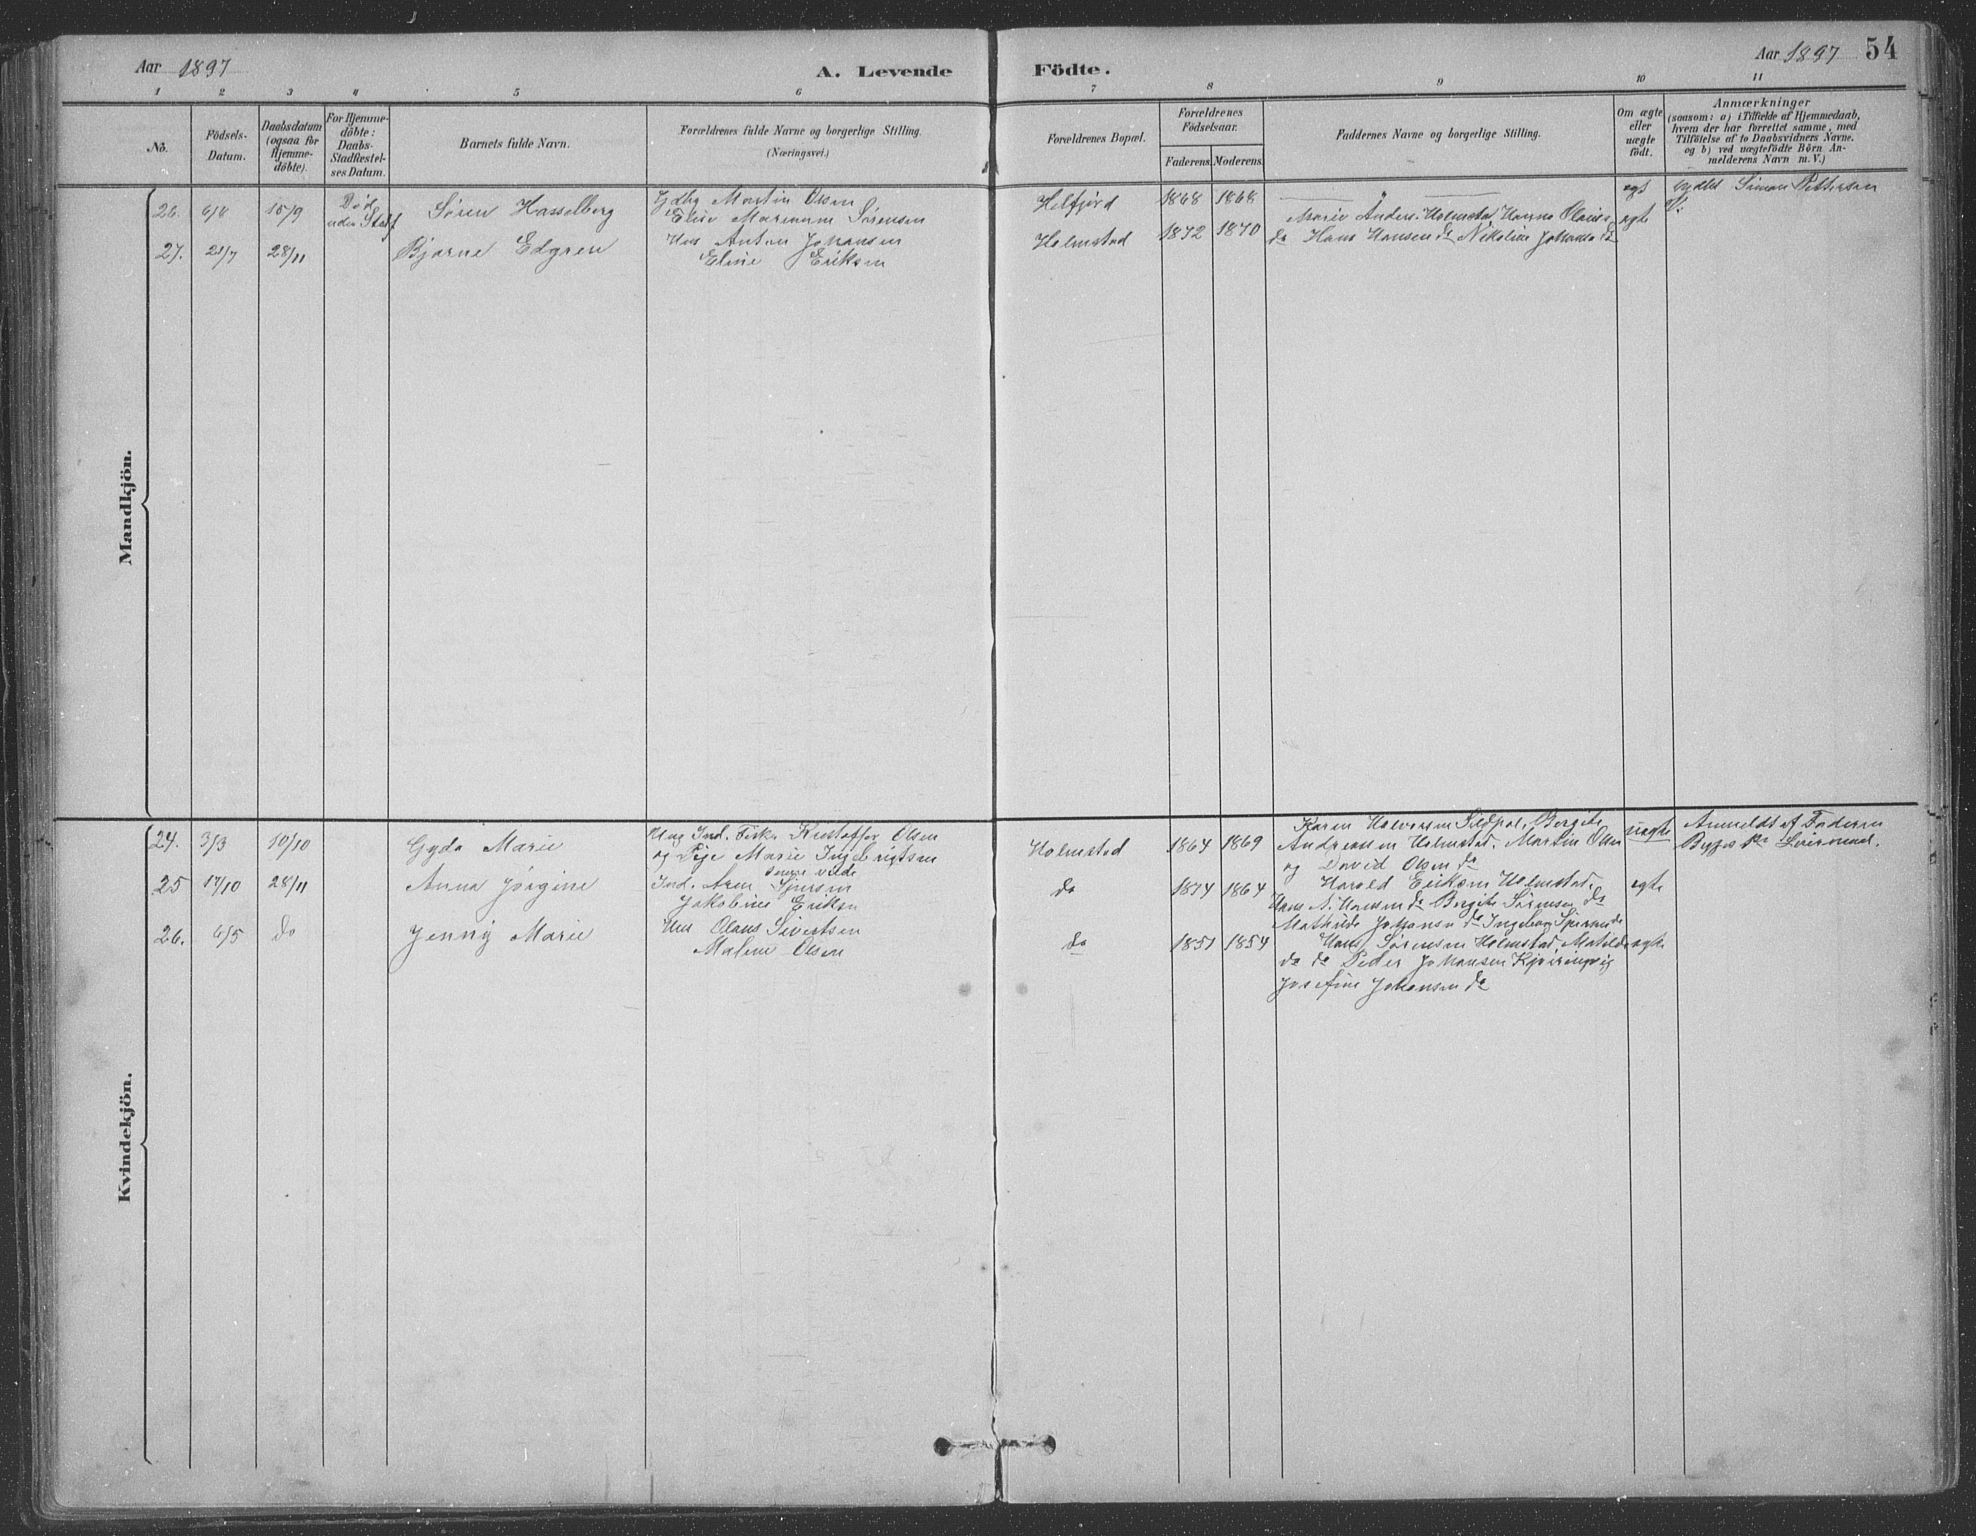 Aar 1897
A. Levende Födte.
Aar 1897 54
1 2 3 4 5 6 7 8 9 10 11
No.
Födsels-
Datum.
Daabsdatum
(ogsaa for
Hjemme-
döbte).
For Hjemme-
döbte:
Daabs-
Stadfæstel-
ses Datum.
Barnets fulde Navn.
Forældrenes fulde Navne og borgerlige Stilling.
(Næringsvei.)
Forældrenes Bopæl.
Forældrenes
Födselsaar.
Faderens. Moderens.
Faddernes Navne og borgerlige Stilling.
Om ægte
eller
uægte
födt.
Anmærkninger
(saasom: a) i Tilfælde af Hjemmedaab,
hvem der har forrettet samme, med
Tilföielse af to Daabsvidners Navne.
og b) ved uægtefödte Börn An-
melderens Navn m. V.)
Mandkjön.
26. 6/8 15/9 Död
uden Stadf
Sören Hasselberg
Gdbg Martin Olsen
Elise Mariane Sørensen
Helfjord 1868 1868 " egt
Simon Pettersen
27. 21/7 28/11 Bjarne Edgren
Hus Anton Johansen
Eline Eriksen
Holmstad 1872 1870
Marie Anders. Holmstad Hanna Olaiss.
do Hans Hansen do Nikoline Johanss do
egte
Kvindekjön.
24. 3/3 10/10 Gyda Marie
Ung Ind. Fisk. Kristoffer Olsen
og Pige Marie Ingebrigtsen
Holmstad 1864 1869
Karen Halvorsen Sildpol, Bergite
Andreassen Holmstad. Martin Olsen
og David Olsen do
uægte
Anmeldt af Faderen
25 17/10 28/11 Anna Jørgine
Ind. Aren
Jakobine Eriksen
do 1874 1864
Harald Eriksen Holmstad,
Hans N. Hansen do Bergite Sørensen do
Mathilde Johansen do Ingeborg
egte
26. 6/5 Do Jenny Marie
Hus Olaus Sivertsen
Malene Olsen
do 1851 1854
Hans Sørensen Holmstad, Matilde
do do Peder Johansen Kjeiringvig
Josefine Johansen do
egte